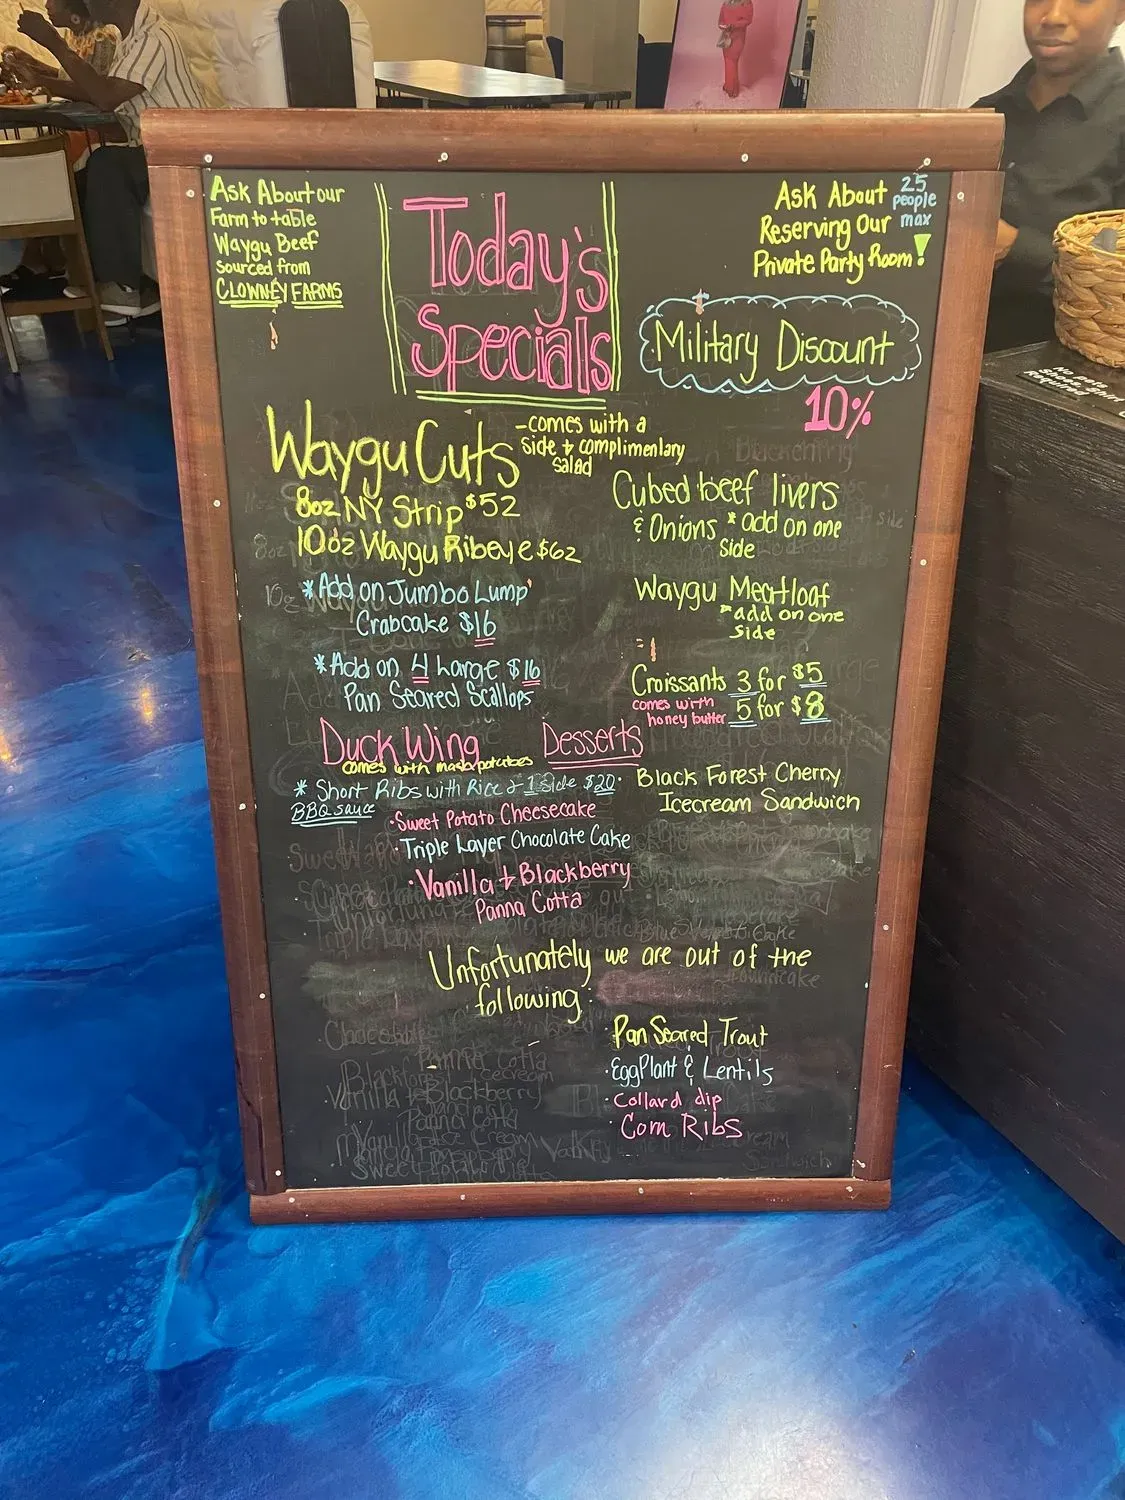 Ask About our
Farm to table
Waygu Beef
sourced from
CLOWNEY FARMS
Today's
Specials
Ask About
Reserving Our
Private Party Room!
25
people
max
Military Discount
10%
Waygu Cuts
-comes with a
side + complimentary
salad
8oz NY Strip $52
10oz Waygu Ribeye $62
*Add on Jumbo Lump
Crabcake $16
*Add on 4 Large $16
Pan Seared Scallops
Cubed beef livers
& Onions *add on one
side
Waygu Meatloaf
*add on one
side
Croissants 3 for $5
comes with
honey butter
5 for $8
Duck Wing
comes with mash potatoes
* Short Ribs with Rice & 1 Side $20
BBQ sauce
Desserts
·Sweet Potato Cheesecake
·Triple Layer Chocolate Cake
·Vanilla + Blackberry
Panna Cotta
· Black Forest Cherry
Icecream Sandwich
Unfortunately we are out of the
following:
·Pan Seared Trout
·EggPlant & Lentils
·Collard dip
·Corn Ribs
No pets
Shoes, Shirt
Required